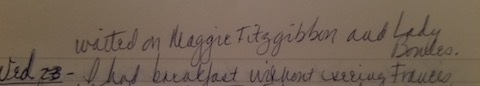 waited on Maggie Fitzgibbon and Lady
Bowles.
Wed 23 - I had breakfast without seeing Francis